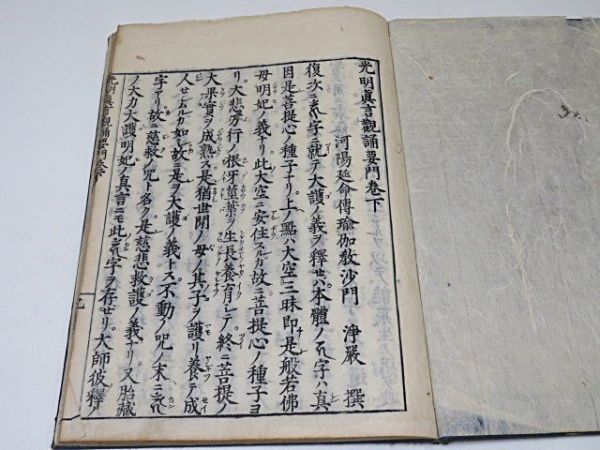 光明眞言觀誦要門卷下
河陽延命傳瑜伽教沙門 淨嚴 撰
復次ニ字ニ就テ大護ノ義ヲ釋セハ本體ノ字ハ真
因是菩提心ノ種子ナリ上ノ點ハ大空三昧即是般若佛
母明妃ノ義ナリ此大空ニ安住スルカ故ニ菩提心ノ種子ヨ
リ大悲万行ノ根牙莖葉ヲ生長養育シテ終ニ菩提ノ
大果實ヲ成熟ス是猶世間ノ母ノ其子ヲ護リ養テ成
人セシムルカ如シ故ニ是ヲ大護ノ義トス不動ノ呪ノ末ニ
字アリ故ニ慈救ノ呪ト名ク是慈悲救護ノ義ナリ又胎藏
ノ大力大護明妃ノ真言ニモ此字ヲ存セリ大師彼釋ノ
光明眞言觀誦要門卷下